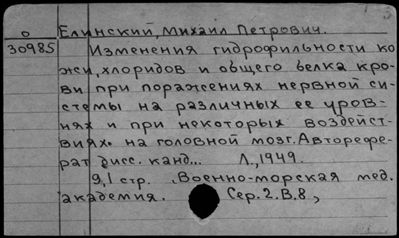 о Елинский, Михаил Петрович.
30985 Изменения гидрофильности ко
жи, хлоридов и общего белка кро-
ви при поражениях нервной си-
стемы на различных ее уров-
нях и при некоторых воздейст-
виях на головной мозг. Авторефе-
рат дисс. канд... Л., 1949.
9,1 стр. Военно-морская мед.
академия. Сер. 2. В. 8,